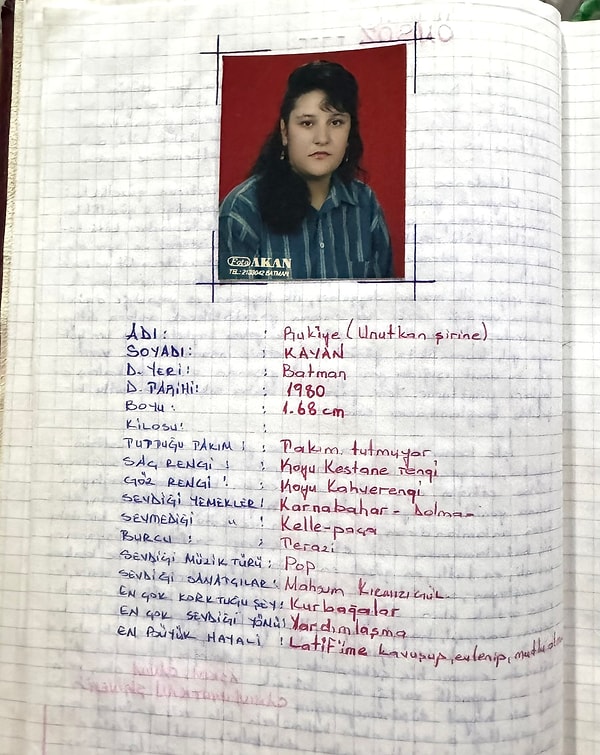 Foto AKAN
TEL: 2133042 BATMAN
ADI : : Rukiye (Unutkan şirine)
SOYADI : : KAYAN
D. YERİ : : Batman
D. TARİHİ : : 1980
BOYU : : 1.68 cm
KİLOSU : :
TUTTUĞU TAKIM : : Takım tutmuyor
SAÇ RENGİ : : Koyu Kestane rengi
GÖZ RENGİ : : Koyu Kahverengi
SEVDİĞİ YEMEKLER : Karnabahar - Dolma -
SEVMEDİĞİ " : Kelle-paça
BURCU : : Terazi
SEVDİĞİ MÜZİK TÜRÜ : Pop
SEVDİĞİ SANATÇILAR : Mahsum Kırmızıgül
EN ÇOK KORKTUĞU ŞEY : Kurbağalar
EN ÇOK SEVDİĞİ YÖNÜ : Yardımlaşma
EN BÜYÜK HAYALİ : Latif'ime kavuşup, evlenip, mutlu